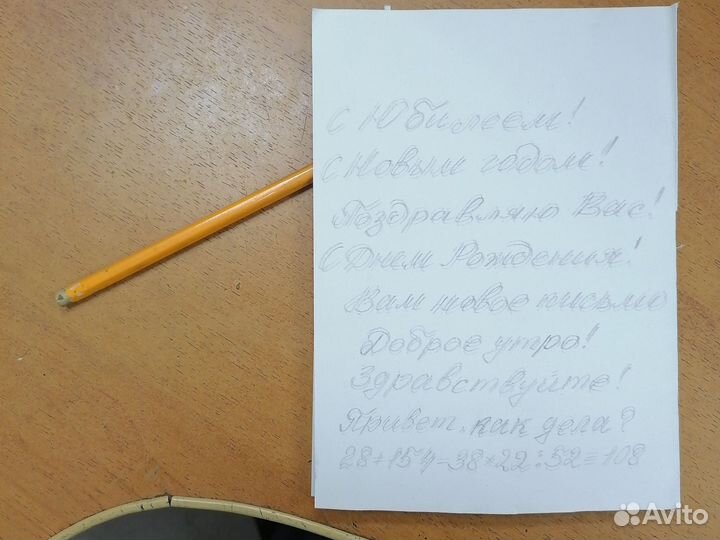 С Юбилеем!
С Новым годом!
Поздравляю Вас!
С Днем Рождения!
Вам новое письмо
Доброе утро!
Здравствуйте!
Привет, как дела?
28+154-38*22÷52=108
Avito